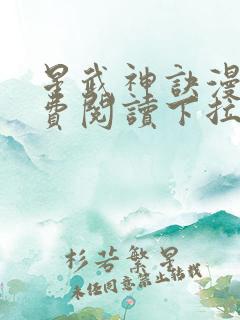 星武神訣漫
費閱讀下拉
杉若繁星
未经同意禁止转载